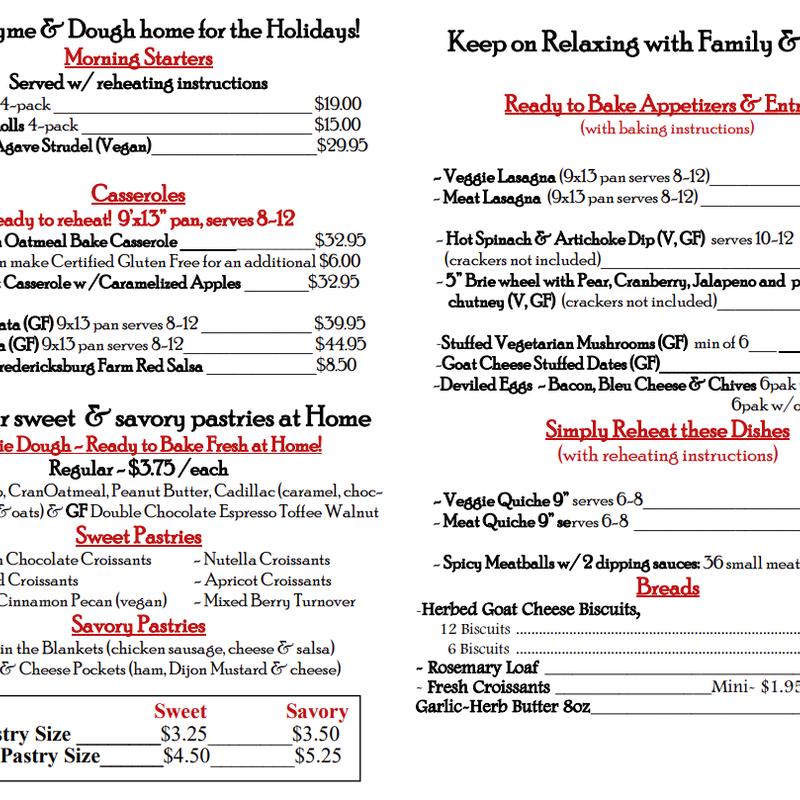 yme & Dough home for the Holidays!
Morning Starters
Served w/ reheating instructions
4-pack ______ $19.00
olls 4-pack ______ $15.00
Agave Strudel (Vegan)______$29.95
Casseroles
eady to reheat! 9'x13" pan, serves 8-12
n Oatmeal Bake Casserole ______$32.95
n make Certified Gluten Free for an additional $6.00
t Casserole w /Caramelized Apples ______$32.95
ata (GF) 9x13 pan serves 8-12 ______ $39.95
a (GF) 9x13 pan serves 8-12______ $44.95
redericksburg Farm Red Salsa ______ $8.50
r sweet & savory pastries at Home
ie Dough ~ Ready to Bake Fresh at Home!
Regular ~ $3.75 /each
o, CranOatmeal, Peanut Butter, Cadillac (caramel, choc-
& oats) & GF Double Chocolate Espresso Toffee Walnut
Sweet Pastries
n Chocolate Croissants ~ Nutella Croissants
d Croissants ~ Apricot Croissants
Cinnamon Pecan (vegan) ~ Mixed Berry Turnover
Savory Pastries
in the Blankets (chicken sausage, cheese & salsa)
& Cheese Pockets (ham, Dijon Mustard & cheese)
Sweet Savory
stry Size ______$3.25______$3.50
Pastry Size______$4.50______$5.25
Keep on Relaxing with Family &
Ready to Bake Appetizers & Entr
(with baking instructions)
~ Veggie Lasagna (9x13 pan serves 8-12)______
~ Meat Lasagna (9x13 pan serves 8-12)______
~ Hot Spinach & Artichoke Dip (V, GF) serves 10-12
(crackers not included)______
~ 5" Brie wheel with Pear, Cranberry, Jalapeno and p
chutney (V, GF) (crackers not included)______
-Stuffed Vegetarian Mushrooms (GF) min of 6___ __
~Goat Cheese Stuffed Dates (GF)______
~Deviled Eggs ~ Bacon, Bleu Cheese & Chives 6pak
6pak w/o
Simply Reheat these Dishes
(with reheating instructions)
~ Veggie Quiche 9" serves 6-8______
~ Meat Quiche 9" serves 6-8 ______
~ Spicy Meatballs w/ 2 dipping sauces: 36 small meat
Breads
-Herbed Goat Cheese Biscuits,
12 Biscuits ......................
6 Biscuits ......................
~ Rosemary Loaf ______
~ Fresh Croissants ______Mini~ $1.95
Garlic~Herb Butter 8oz______